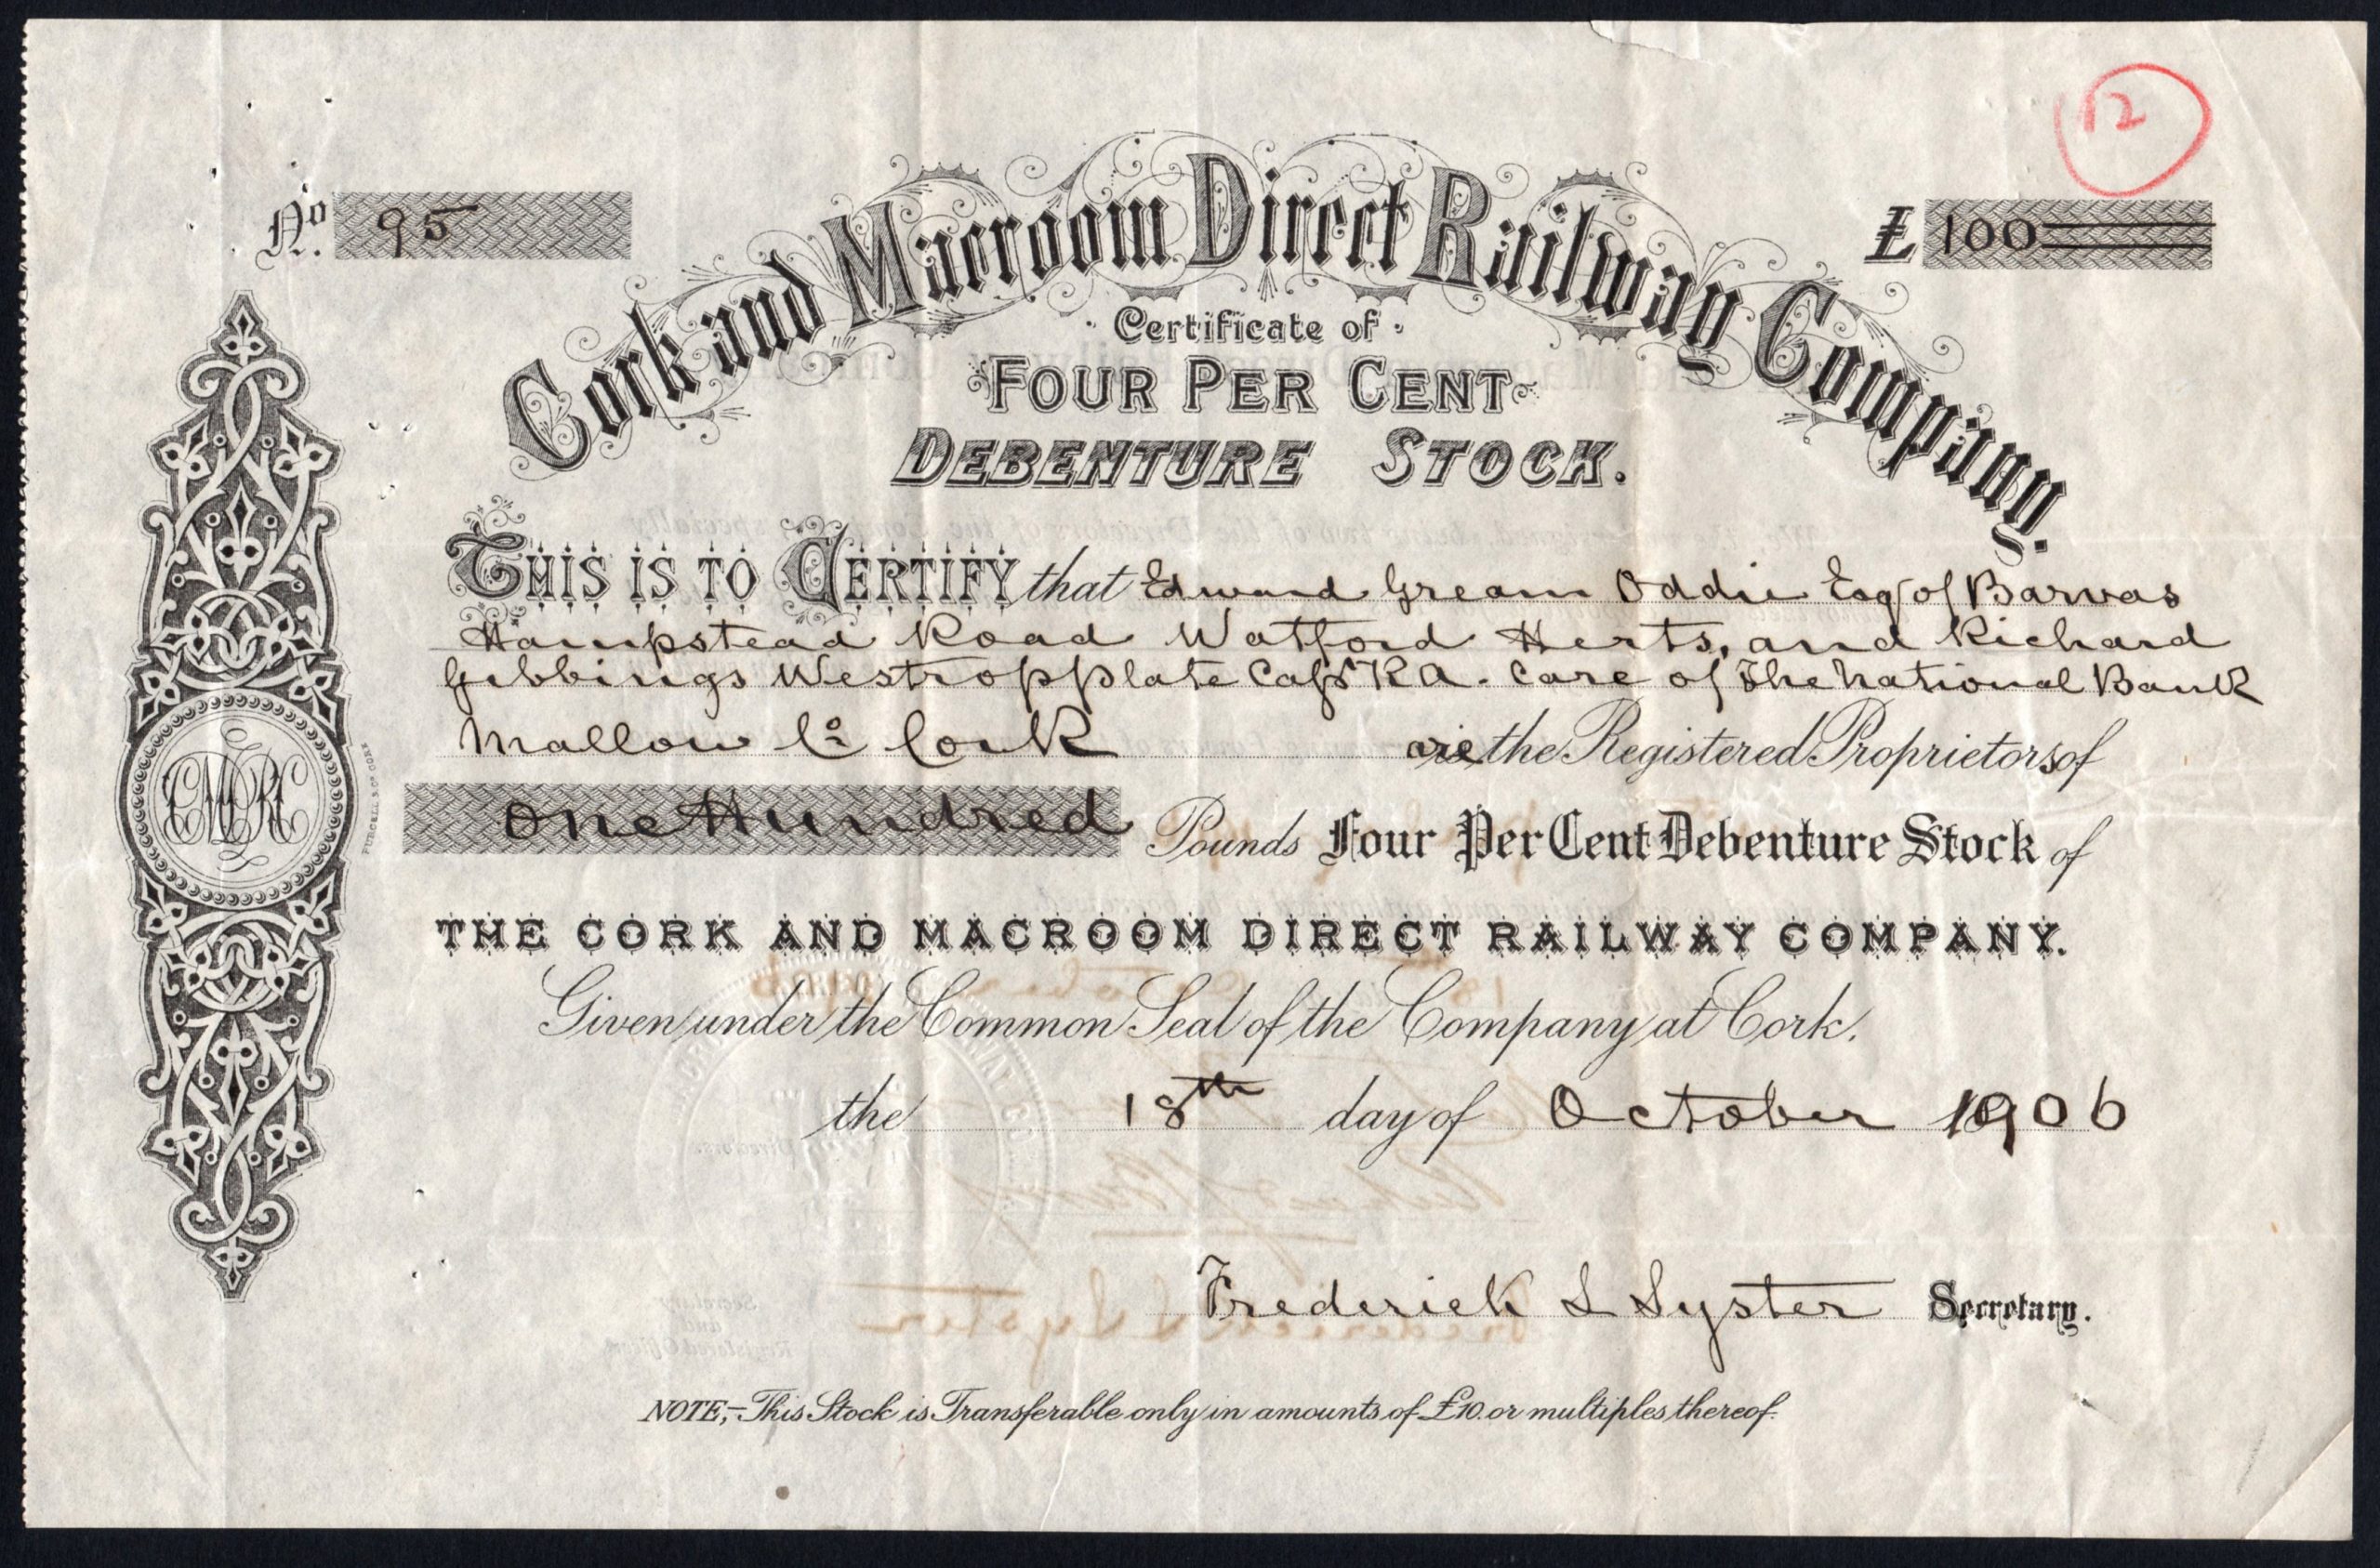 12
No. 95
£ 100
Cork and Macroom Direct Railway Company.
Certificate of
FOUR PER CENT
DEBENTURE STOCK.
THIS IS TO CERTIFY that Edward Gream Oddie Esq of Barvas
Hampstead Road Watford Herts, and Richard
Gibbings Westropp Plate Capt RA. care of The National Bank
Mallow Co Cork are the Registered Proprietors of
One Hundred Pounds Four Per Cent Debenture Stock of
THE CORK AND MACROOM DIRECT RAILWAY COMPANY.
Given under the Common Seal of the Company at Cork.
the 18th day of October 1906
Frederick L Lyster Secretary.
NOTE,- This Stock is Transferable only in amounts of £10. or multiples thereof.
CMDRC
PURCELL & CO CORK